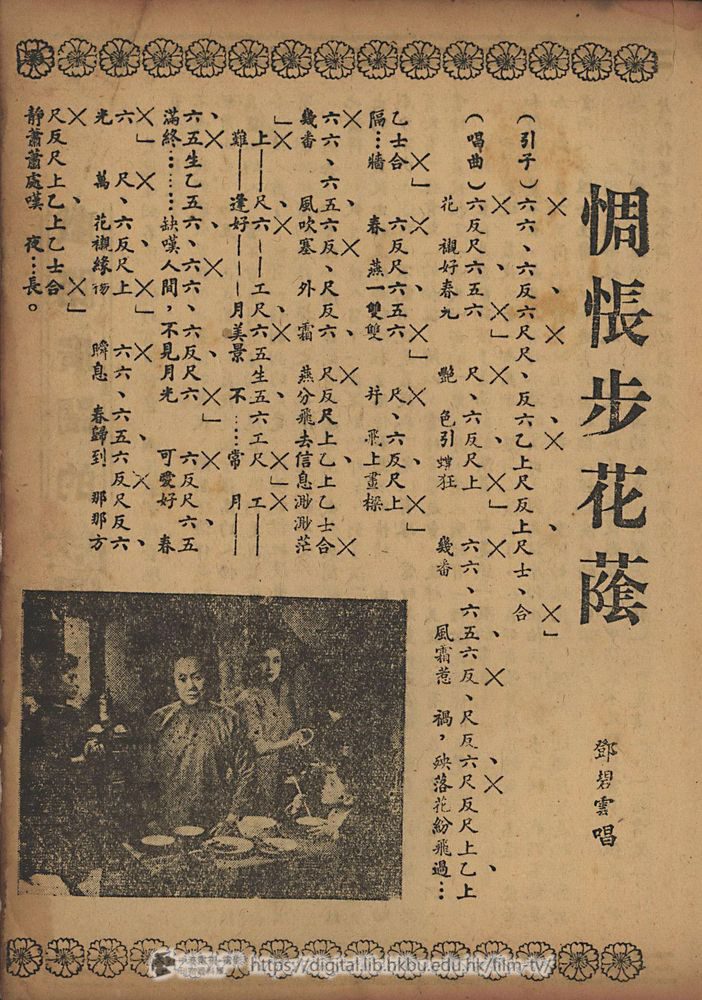 惆悵步花蔭
鄧碧雲唱
（引子）六六、六反六尺尺、反六乙上尺反上尺士、合
（唱曲）六反尺六五六　尺、六反尺上　六六、六五六反、尺反六尺反尺上乙上
花　襯好春光　艷　色引蜂狂　幾番　風霜惹　禍，殃落花紛飛過…
乙士合　六反尺六五六　尺、六反尺上
隔…牆　春　燕一雙雙　并　飛上畫樑
六六、六五六反、尺反六　尺反尺上乙上乙士合
幾番　風吹塞　外　霜　燕分飛去信息渺渺茫
上——尺六——工尺六五生五六工尺　工——
難——逢好——月美景　不…常　月——
六五生乙五六、六六、六反尺六　六反尺六五
滿終……缺嘆人間，不見月光　可愛好　春
六　尺、六反尺上　六六、六五六反尺反六
光　萬　花襯緣　瞬息　春歸到　那那方
尺反尺上乙上乙士合
靜蕭蕭處嘆　夜…長。
https://digital.lib.hkbu.edu.hk/film-tv/